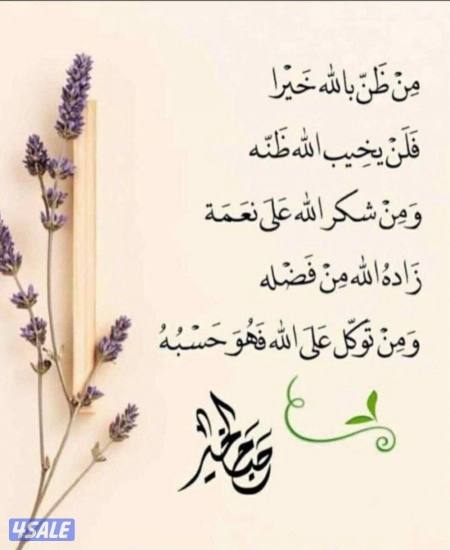 مِنْ ظَنّ بالله خَيْرا
فَلَنْ يخِيب الله ظَنّه
وَمِنْ شكر الله عَلَى نعَمَة
زَادهُ الله مِنْ فَضْله
وَمِنْ تَوَكّل عَلَى الله فَهُوَ حَسْبُهُ
صباح الخير
4SALE